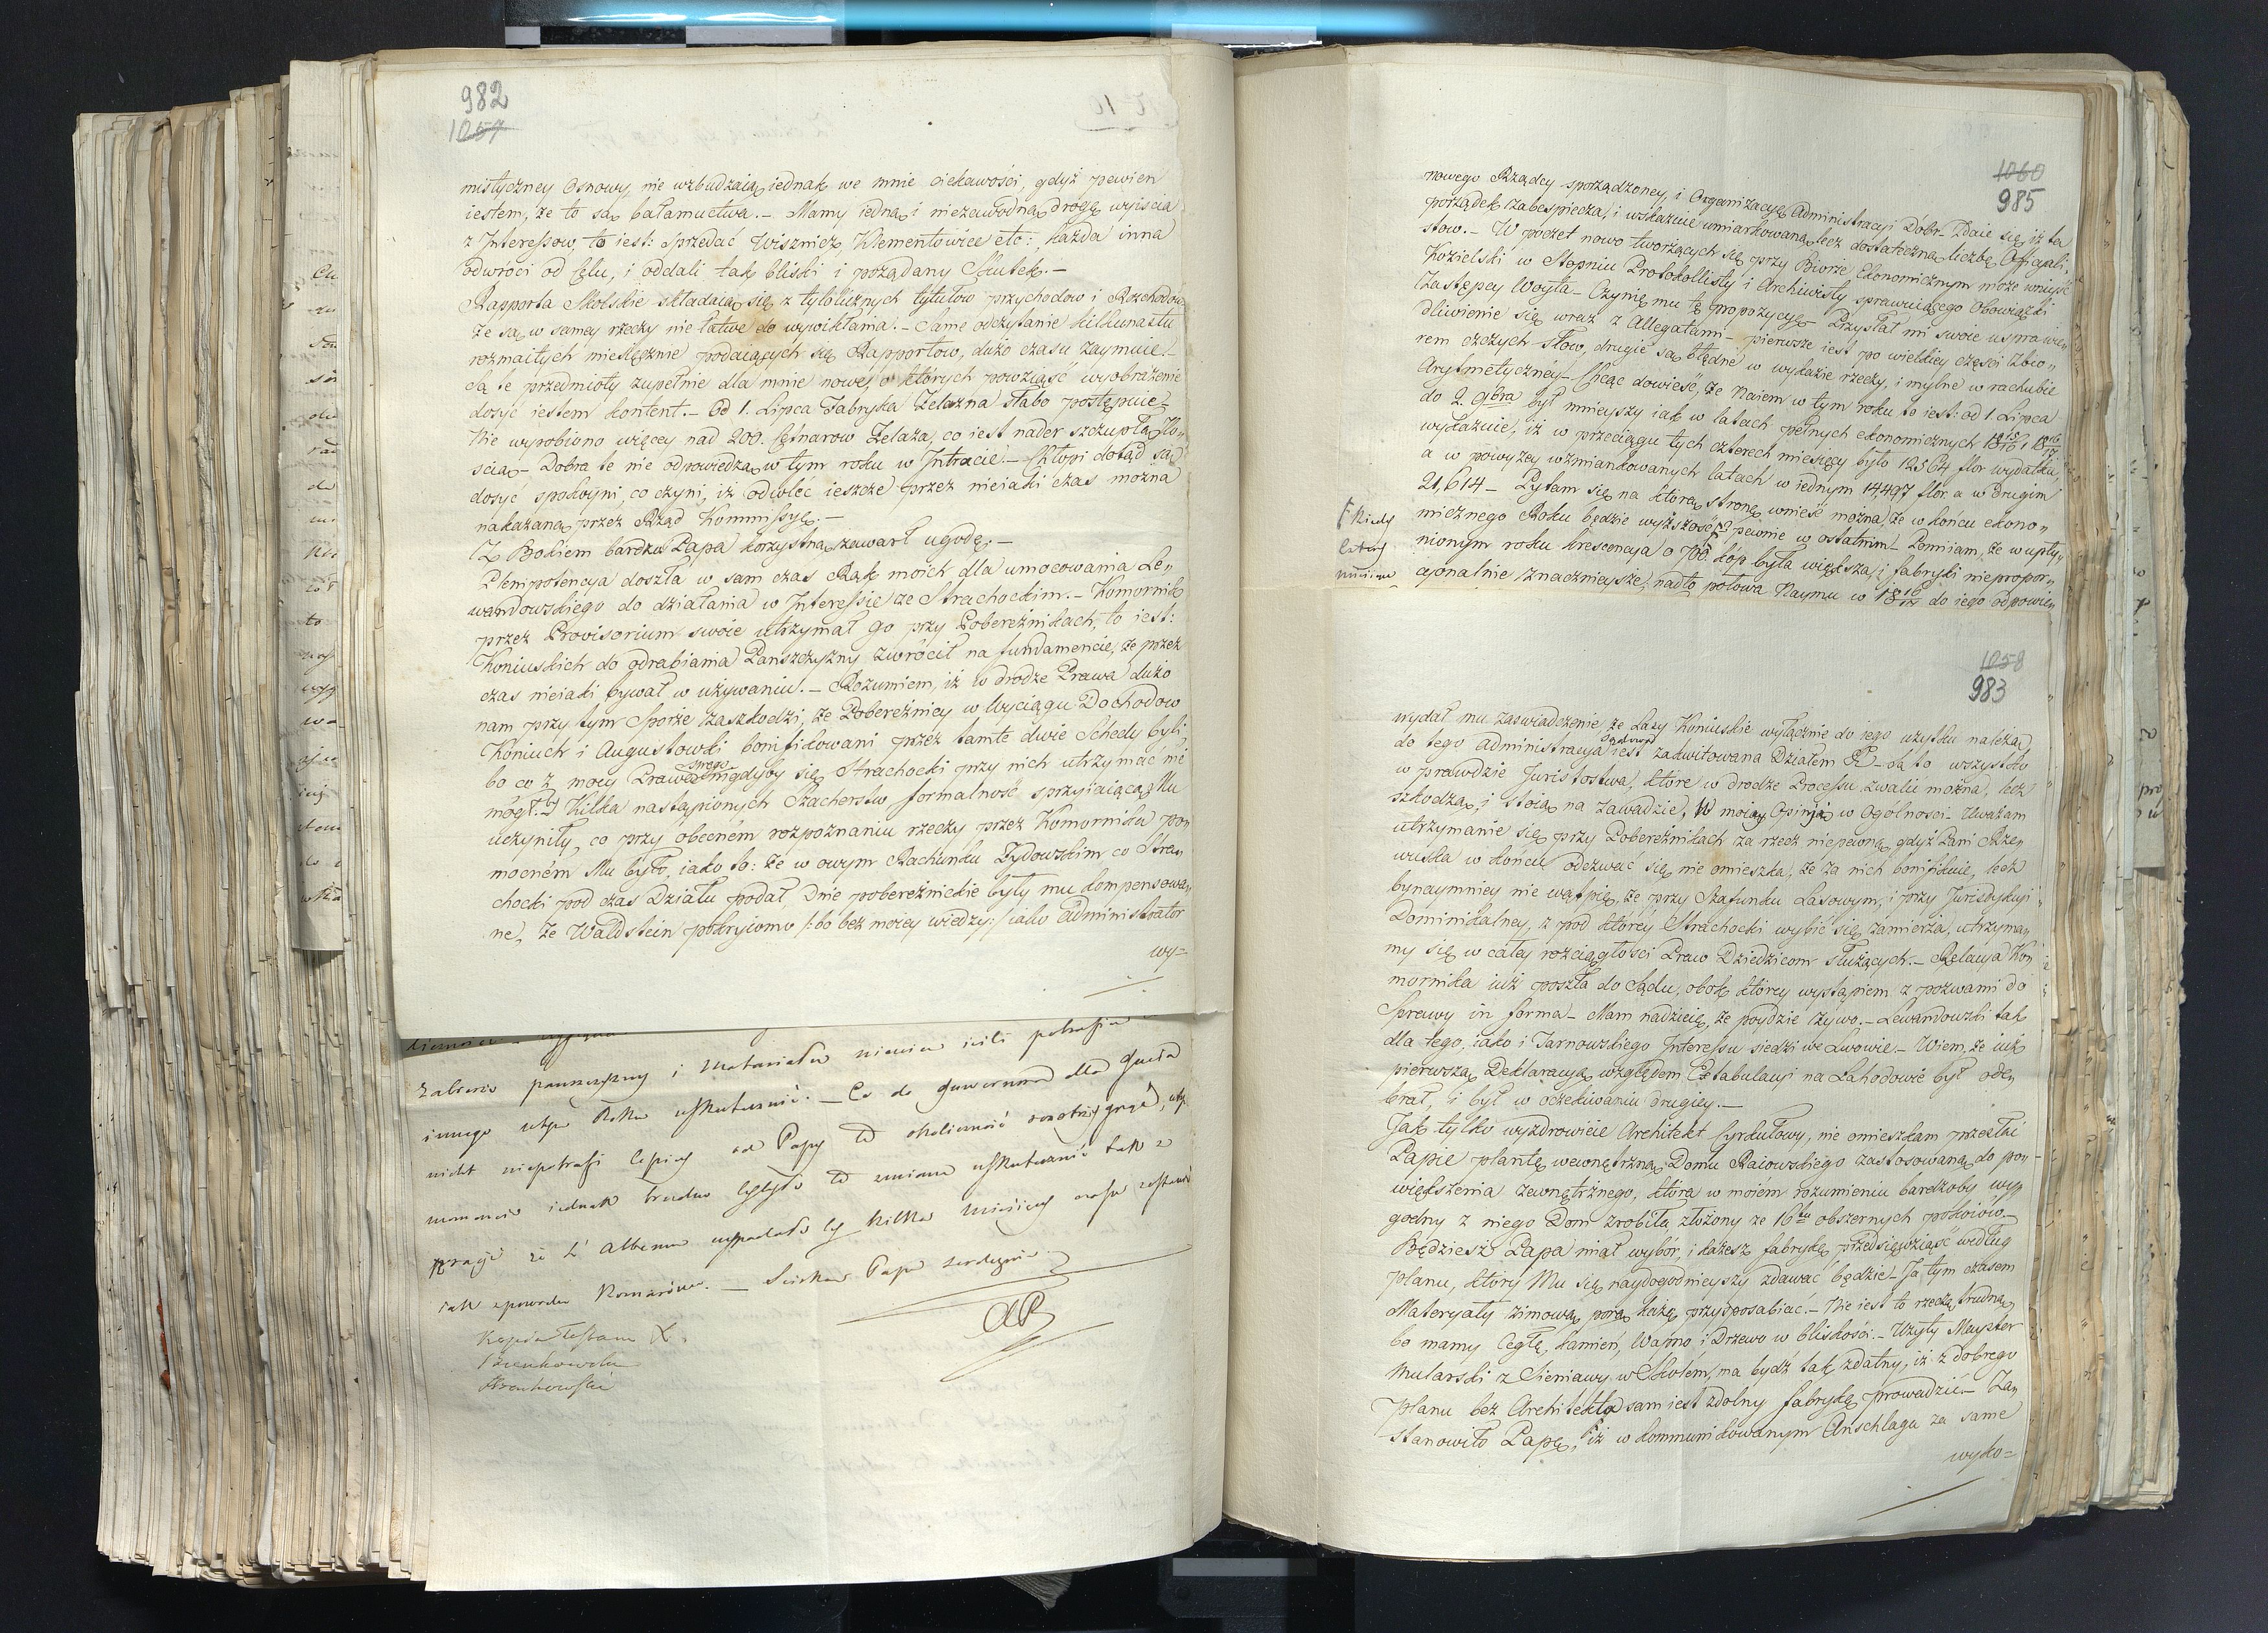 982
1057
mistyczney Osnowy, nie wzbudzaią iednak we mnie ciekawości, gdyż pewien
iestem, że to są bałamuctwa. – Mamy iedną i niezawodną drogę wyiścia
z Interessow, to iest: sprzedać Wisznicz, Klementowice etc: każda inna
odwróci od Celu, i oddali tak bliski i pożądany Skutek. –
Rapporta Skolskie składaią się z tylolicznych tytułow przychodow i Rozchodow
że są w samey rzeczy nie łatwe do wywikłania. – Samo odczytanie kilkunastu
rozmaitych miesięcznie podaiących się Rapportow, dużo czasu zaymuie. –
Są te przedmioty zupełnie dla mnie nowe, o których powziąść wyobrażenie
dosyć iestem kontent. – Od 1. Lipca Fabryka Żelazna słabo postępuie,
Nie wyrobiono więcey nad 200. Cetnarow Żelaza, co iest nader szczupłą Ilo„
ścią – Dobra te nie odpowiedzą w tym roku w Intracie. – Chłopi dotąd są
dosyć spokoyni, co czyni, iż odwlec ieszcze przez nieiaki czas można
nakazaną przez Rząd Kommissyę. –
Z Bokiem bardzo Papa korzystną zawarł ugodę. –
Plenipotencya doszła w sam czas Rąk moich dla umocowania Le„
wandowskiego do działania w Interessie ze Strachockim. – Komornik
przez Provisorium swoie utrzymał go przy Pobereżnikach, to iest:
Koniuskich do odrabiania Panszczyzny zwrócił na fundamencie, że przez
czas nieiaki bywał w używaniu. – Rozumiem, iż w drodze Prawa dużo
nam przy tym Sporze zaszkodzi, że Pobereźnicy w Wyciągu Dochodow
Koniuch i Augustowki bonifikowani przez tamte dwie Schedy byli,
bo co z mocy Prawa swego nigdyby się Strachocki przy nich utrzymać nie
mógł. – Kilka nastąpionych Szacherstw formalność sprzyiaiącą Mu
uczyniły, co przy obecném rozpoznaniu rzeczy przez Komornika po„
mocném Mu było, iako to: że w owym Rachunku Żydowskim co Stra„
chocki pod czas Działu podał, Dnie pobereźnickie były mu kompensowa„
ne, że Waldstein pokryiomo /: bo bez moiey wiedzy :/ iako Administrator
wy=
innego
nikt niepotrafi lepiey od Papy
iednak trudno
kilka
Komarów. – Papę serdecznie
AP
1060
985
nowego Rządcy sporządzoney, i Organizacyę Administracyi Dóbr – Zdaie się, iż ta
porządek zabespiecza, i wskazuie umiarkowaną lecz dostateczną liczbę Officyali„
stow. – W poczet nowo tworzących się przy Biorze Ekonomicznym może wniyść
Kozielski w Stopniu Protokollisty i Archiwisty sprawuiącego Obowiązki
Zastępcy Woyta – Czynię mu tę propozycyę – Przysłał mi swoie usprawie„
dliwienie się wraz z Allegatami – pierwsze iest po wielkiey części Zbio„
rem czczych słow, drugie są błędne w wykazie rzeczy, i mylne w rachubie
Arytmetyczney – Chcąc dowieść, że Naiem w tym roku to iest: od 1. Lipca
do 2. 9bra był mnieyszy iak w latach pełnych ekonomicznych 18 15/16 i 18 16/17
wykazuie, iż w przeciągu tych czterech miesięcy było 12564 flor wydatku,
a w powyzey wzmiankowanych latach w iednym 14,497 flor. a w drugim
21,614 – Pytam się na którą stronę wnieść można, że w końcu ekono„
micznego Roku będzie wyższość? pewnie w ostatnim – Pomiiam, że w upły„
nionym roku krescencya o 700. kóp była większa, i fabryki niepropor„
cyonalnie znacznieysze, nadto połowa Naymu w 18 16/17 do iego odpowie„
Kiedy
cztery
miesiące
1058
983
wydał mu zaswiadczenie, że Lasy Koniuskie wyłącznie do iego użytku należą
do tego administracya Sądowa iest zakwitowana Działem – Są to wszystko
w prawdzie Juristostwa, które w drodze Processu zwalić można, lecz
szkodzą, i stoią na zawadzie, W moiey Opinii w Ogólności – Uważam
utrzymanie się przy Pobereżnikach za rzecz niepewną, gdyż Pani Rze„
wuska w końcu odezwać się nie omieszka, że za nich bonifikuie, lecz
bynaymniey nie wątpię, że przy Szafunku Lasowym, i przy Jurisdykcyi
Dominikalney, z pod którey Strachocki wybić się zamierza, utrzyma„
my się w całey rozciągłości Praw Dziedzicom służących. – Relacya Ko„
mornika iuż poszła do Sądu, obok którey wystąpiem z pozwami do
Sprawy in forma – Mam nadzieię, że poydzie żywo. – Lewandowski tak
dla tego, iako i Tarnowskiego Interessu siedzi we Lwowie – Wiem, że iuż
pierwszą Deklaracyą względem Extabulacyi na Lahodowie był ode„
brał, i był w oczekiwaniu drugiey. –
Jak tylko wyzdrowieie Architekt Cyrkułowy, nie omieszkam przesłać
Papie plantę wewnętrzną Domu Raiowskiego zastosowaną do po„
większenia zewnętrznego, która w moiém rozumieniu bardzoby wy„
godny z niego Dom zrobiła złożony ze 16tu obszernych pokoiów. –
Będziesz Papa miał wybór, i każesz fabrykę przedsięwziąść według
planu, który Mu się naydogodnieyszy zdawać będzie – Ja tym czasem
Materyały zimową porą każę przysposabiać. – Nie iest to rzeczą trudną,
bo mamy Cegłę, kamień, Wapno i Drzewo w bliskości. – Użyty Mayster
Mularski z Sieniawy w Skolém, ma bydź tak zdatny, iż z dobrego
planu bez Architekta sam iest zdolny fabrykę prowadzić – Za„
stanowiło Papę, iż w kommunikowanym Anschlagu za same
wyko=